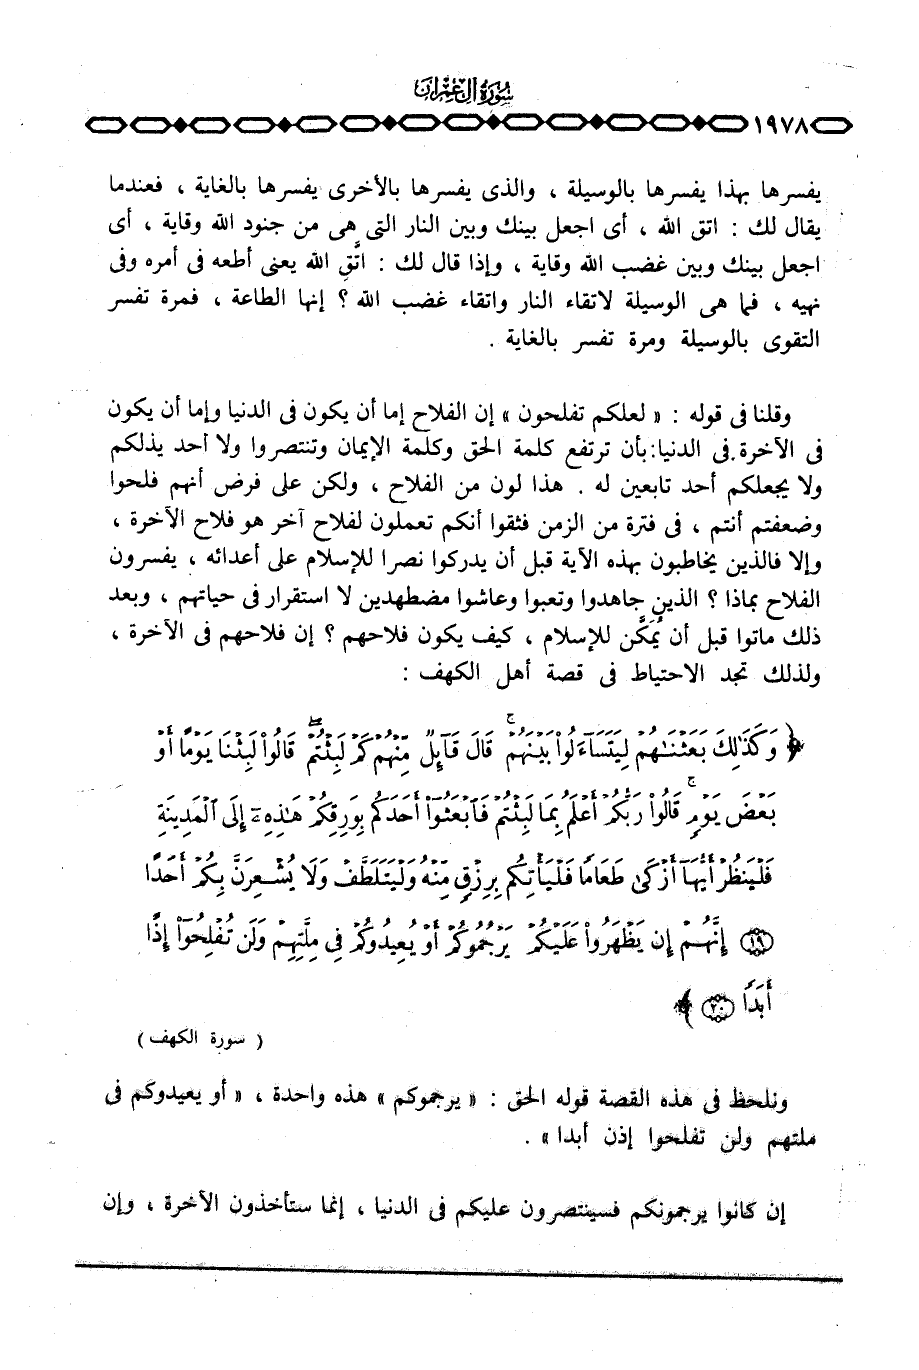 سورة آل عمران
١٩٧٨
يفسرها بهذا يفسرها بالوسيلة ، والذى يفسرها بالأخرى يفسرها بالغاية ، فعندما
يقال لك : اتق الله ، أى اجعل بينك وبين النار التى هى من جنود الله وقاية ، أى
اجعل بينك وبين غضب الله وقاية ، وإذا قال لك : اتَّق الله يعنى أطعه فى أمره وفى
نهيه ، فما هى الوسيلة لاتقاء النار واتقاء غضب الله ؟ إنها الطاعة ، فمرة تفسر
التقوى بالوسيلة ومرة تفسر بالغاية .
وقلنا فى قوله : « لعلكم تفلحون » إن الفلاح إما أن يكون فى الدنيا وإما أن يكون
فى الآخرة. فى الدنيا: بأن ترتفع كلمة الحق وكلمة الإيمان وتنتصروا ولا أحد يذلكم
ولا يجعلكم أحد تابعين له . هذا لون من الفلاح ، ولكن على فرض أنهم فلحوا
وضعفتم أنتم ، فى فترة من الزمن فثقوا أنكم تعملون لفلاح آخر هو فلاح الآخرة ،
وإلا فالذين يخاطبون بهذه الآية قبل أن يدركوا نصرا للإسلام على أعدائه ، يفسرون
الفلاح بماذا ؟ الذين جاهدوا وتعبوا وعاشوا مضطهدين لا استقرار فى حياتهم ، وبعد
ذلك ماتوا قبل أن يُمَكَّن للإسلام ، كيف يكون فلاحهم ؟ إن فلاحهم فى الآخرة ،
ولذلك تجد الاحتياط فى قصة أهل الكهف :
﴿ وَكَذَٰلِكَ بَعَثْنَٰهُمْ لِيَتَسَآءَلُوا۟ بَيْنَهُمْ ۚ قَالَ قَآئِلٌ مِّنْهُمْ كَمْ لَبِثْتُمْ ۖ قَالُوا۟ لَبِثْنَا يَوْمًا أَوْ
بَعْضَ يَوْمٍ ۚ قَالُوا۟ رَبُّكُمْ أَعْلَمُ بِمَا لَبِثْتُمْ فَٱبْعَثُوٓا۟ أَحَدَكُم بِوَرِقِكُمْ هَٰذِهِۦٓ إِلَى ٱلْمَدِينَةِ
فَلْيَنظُرْ أَيُّهَآ أَزْكَىٰ طَعَامًا فَلْيَأْتِكُم بِرِزْقٍ مِّنْهُ وَلْيَتَلَطَّفْ وَلَا يُشْعِرَنَّ بِكُمْ أَحَدًا
﴿١٩﴾ إِنَّهُمْ إِن يَظْهَرُوا۟ عَلَيْكُمْ يَرْجُمُوكُمْ أَوْ يُعِيدُوكُمْ فِى مِلَّتِهِمْ وَلَن تُفْلِحُوٓا۟ إِذًا
أَبَدًا ﴿٢٠﴾ ﴾
( سورة الكهف )
ونلحظ فى هذه القصة قوله الحق : « يرجموكم » هذه واحدة ، « أو يعيدوكم فى
ملتهم ولن تفلحوا إذن أبدا » .
إن كانوا يرجمونكم فسينتصرون عليكم فى الدنيا ، إنما ستأخذون الآخرة ، وإن